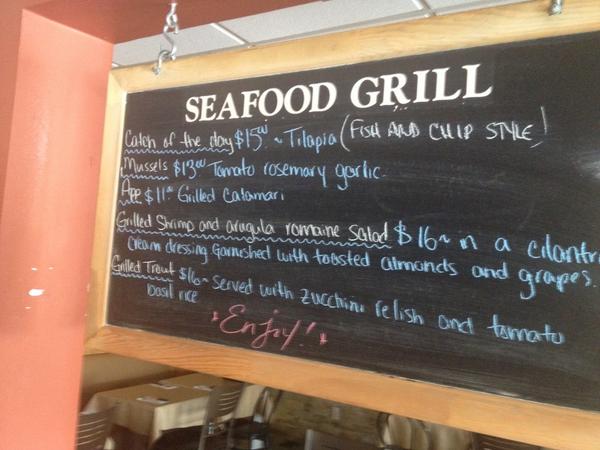 SEAFOOD GRILL
Catch of the day $15⁰⁰ ~ Tilapia (FISH AND CHIP STYLE)
Mussels $13⁰⁰ Tomato rosemary garlic.
App $11⁰⁰ Grilled Calamari
Grilled Shrimp and arugula romaine Salad $16~ in a cilantr
cream dressing Garnished with toasted almonds and grapes.
Grilled Trout $16~ Served with zucchini relish and tomato
basil rice
*Enjoy!*